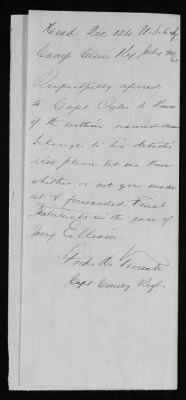 Head Qrs 124 U.S.C.
Camp Nelson Ky July
Respectfully referred
to Capt to know
if the within named man
belongs to his detach
Also please let me know
whether or not you made
out & forwarded Final
Statements in the case of
Ellison
Fred. R.
Capt Comdg Regt.